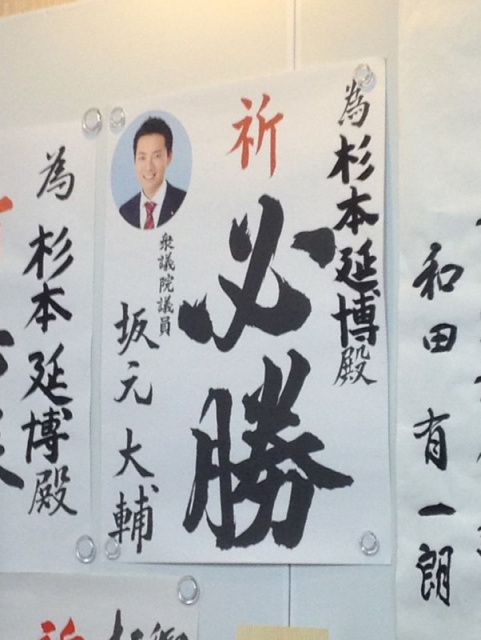 為杉本延博殿
祈
必勝
衆議院議員
坂元大輔
為杉本延博殿
和田有一朗
祈